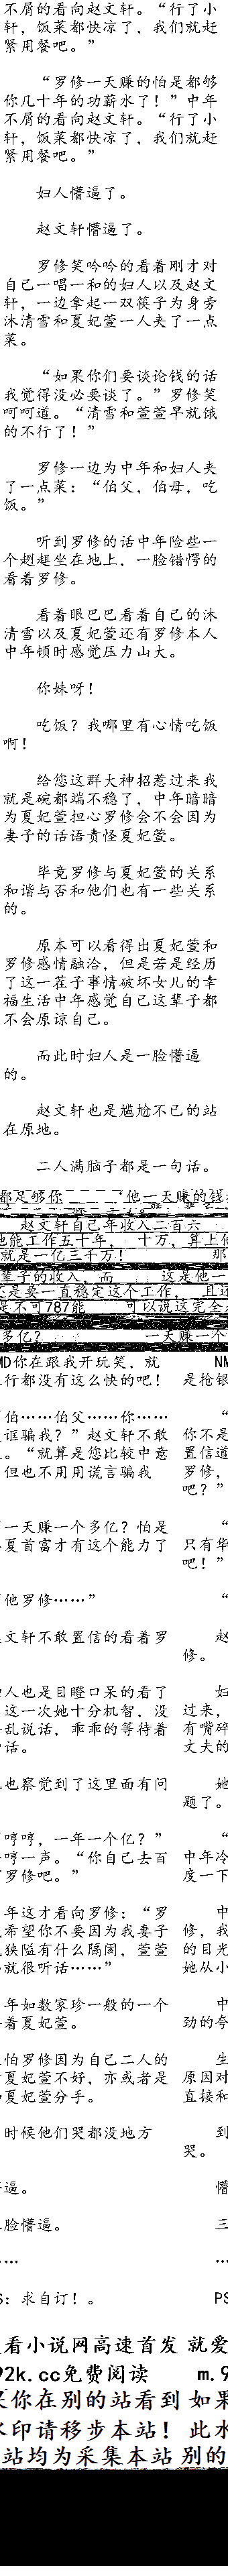 不屑的看向赵文轩。“行了小
轩，饭菜都快凉了，我们就赶
紧用餐吧。”
“罗修一天赚的怕是都够
你几十年的功薪水了！”中年
不屑的看向赵文轩。“行了小
轩，饭菜都快凉了，我们就赶
紧用餐吧。”
妇人懵逼了。
赵文轩懵逼了。
罗修笑吟吟的看着刚才对
自己一唱一和的妇人以及赵文
轩，一边拿起一双筷子为身旁
沐清雪和夏妃萱一人夹了一点
菜。
“如果你们要谈论钱的话
我觉得没必要谈了。”罗修笑
呵呵道。“清雪和萱萱早就饿
的不行了！”
罗修一边为中年和妇人夹
了一点菜：“伯父，伯母，吃
饭。”
听到罗修的话中年险些一
个趔趄坐在地上，一脸错愕的
看着罗修。
看着眼巴巴看着自己的沐
清雪以及夏妃萱还有罗修本人
中年顿时感觉压力山大。
你妹呀！
吃饭？我哪里有心情吃饭
啊！
给您这群大神招惹过来我
就是碗都端不稳了，中年暗暗
为夏妃萱担心罗修会不会因为
妻子的话语责怪夏妃萱。
毕竟罗修与夏妃萱的关系
和谐与否和他们也有一些关系
的。
原本可以看得出夏妃萱和
罗修感情融洽，但是若是经历
了这一茬子事情破坏女儿的幸
福生活中年感觉自己这辈子都
不会原谅自己。
而此时妇人是一脸懵逼
的。
赵文轩也是尴尬不已的站
在原地。
二人满脑子都是一句话。
都足够你 他一天赚的钱
赵文轩自己年收入二百六 十万，算上他
能工作五十年，
就是一亿三千万！ 那
辈子的收入，而 这是他一
是要一直稳定这个工作， 且还
是不可787能 可以说这完全
多亿？ 一天赚一个
MD你在跟我开玩笑，就 NM
行都没有这么快的吧！ 是抢银
伯……伯父……你…… “
诓骗我？”赵文轩不敢 你不是
。“就算是您比较中意 置信道
但也不用用谎言骗我 罗修，
吧？”
一天赚一个多亿？怕是 “
夏首富才有这个能力了 只有华
吧！”
他罗修……” “
文轩不敢置信的看着罗 赵
修。
人也是目瞪口呆的看了 妇
这一次她十分机智，没 过来，
乱说话，乖乖的等待着 有嘴碎
话。 丈夫的
也察觉到了这里面有问 她
题了。
哼哼，一年一个亿？” “
哼一声。“你自己去百 中年冷
罗修吧。” 度一下
年这才看向罗修：“罗 中
希望你不要因为我妻子 修，我
狭隘有什么隔阂，萱萱 的目光
就很听话……” 她从小
年如数家珍一般的一个 中
着夏妃萱。 劲的夸
怕罗修因为自己二人的 生
夏妃萱不好，亦或者是 原因对
夏妃萱分手。 直接和
时候他们哭都没地方 到
哭。
逼。 懵
脸懵逼。 三
… …
S：求自订！。 PS
看小说网高速首发 就爱
92k.cc免费阅读 m.9
你在别的站看到 如果
水印请移步本站！ 此水
站均为采集本站 别的